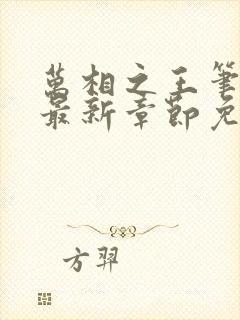 萬相之王筆
最新章節免
方羿